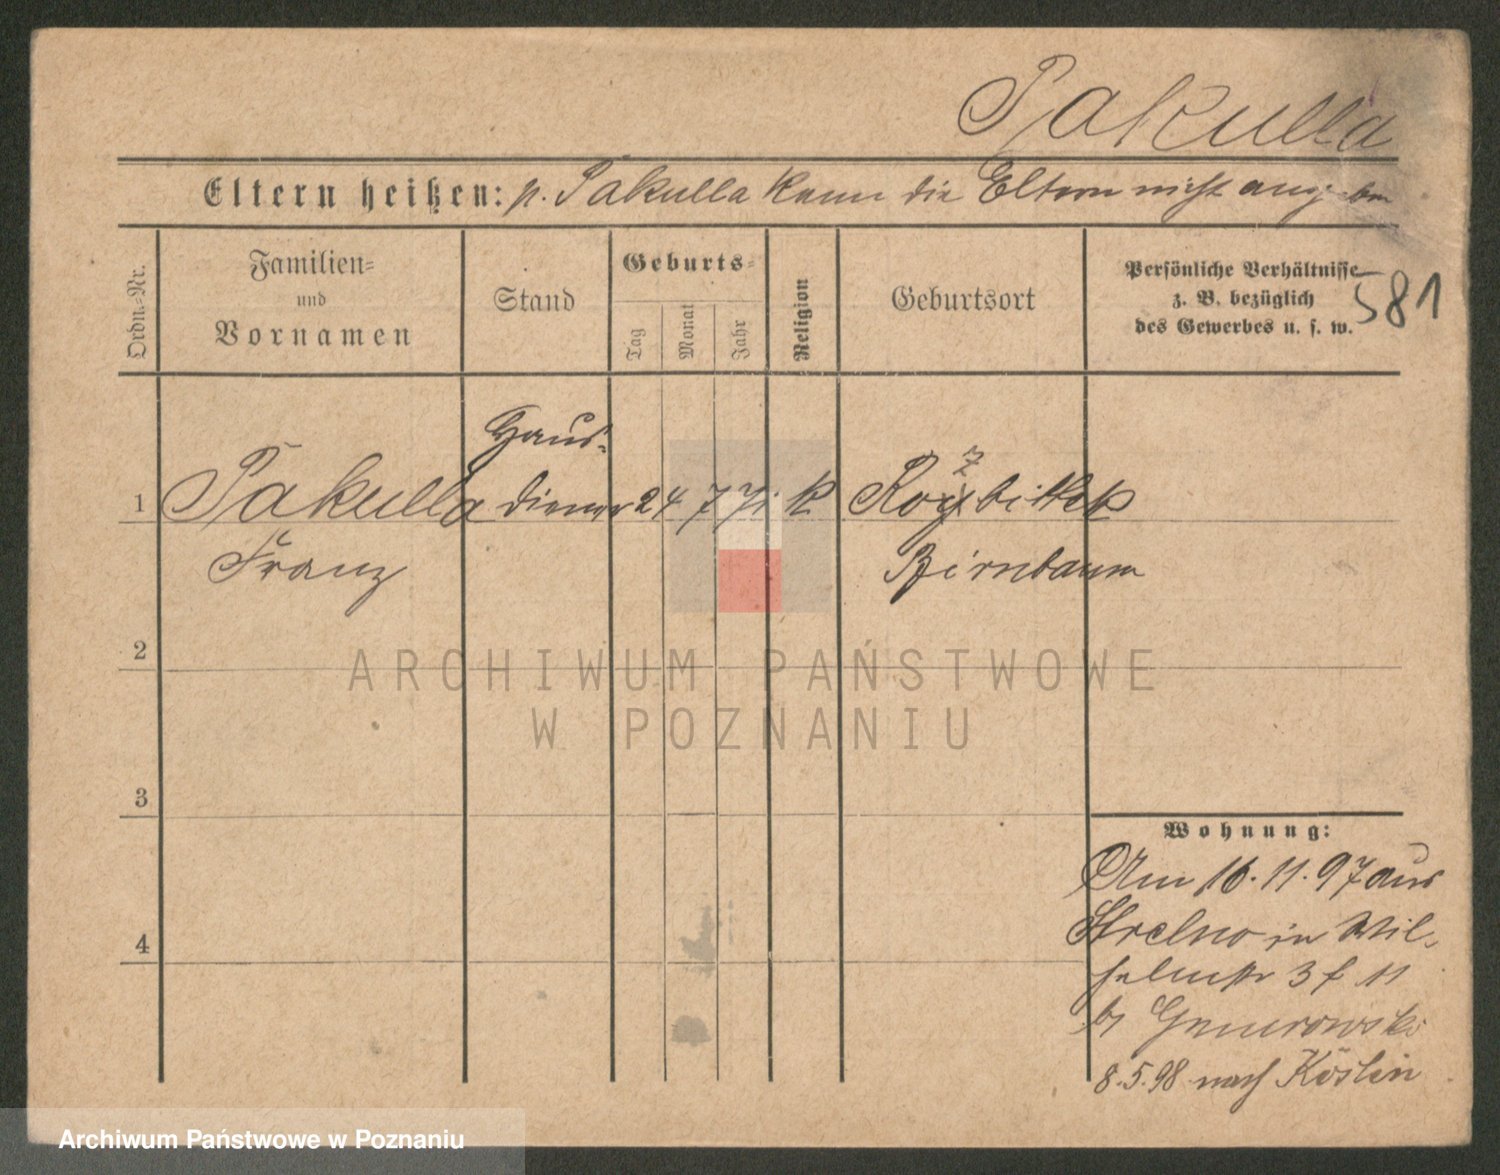 Pakulla
Eltern heißen: p. Pakulla kann die Eltern nicht angeben
Ordn.=Nr.
Familien=
und
Vornamen
Stand
Geburts=
Tag
Monat
Jahr
Religion
Geburtsort
Persönliche Verhältnisse
z. B. bezüglich
des Gewerbes u. s. w.
581
Haus-
1 Pakulla diener 24 7 71 k
Franz
Birnbaum
2
ARCHIWUM PAŃSTWOWE
W POZNANIU
3
Wohnung:
Am 16.11.97 aus
Strelno in Wil-
helmstr 3 f 11
b/
8.5.98 nach Köslin
4
Archiwum Państwowe w Poznaniu